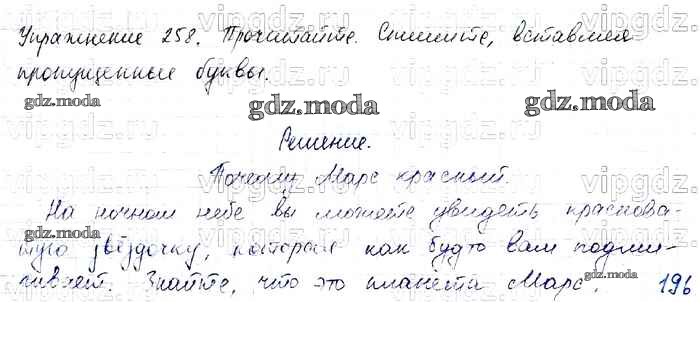 Упражнение 258. Прочитайте. Спишите, вставляя
пропущенные буквы.
gdz.moda gdz.moda gdz.moda
Решение.
Почему Марс красный.
На ночном небе вы можете увидеть краснова-
тую звёздочку, которая как будто вам подми-
гивает. Знайте, что это планета Марс. 196